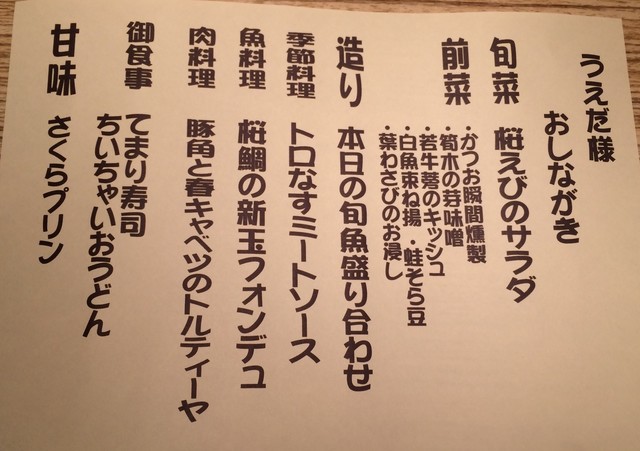 うえだ様
おしながき
旬菜 桜えびのサラダ
前菜 ・かつお瞬間燻製
・筍木の芽味噌
・若牛蒡のキッシュ
・白魚束ね揚 ・蛙そら豆
・葉わさびのお浸し
造り 本日の旬魚盛り合わせ
季節料理 トロなすミートソース
魚料理 桜鯛の新玉フォンデュ
肉料理 豚角と春キャベツのトルティーヤ
御食事 てまり寿司
ちいちゃいおうどん
甘味 さくらプリン